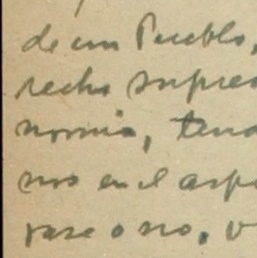 de un Pueblo,
recho supre
nomia, tend
mos en el aspe
rase o no, v